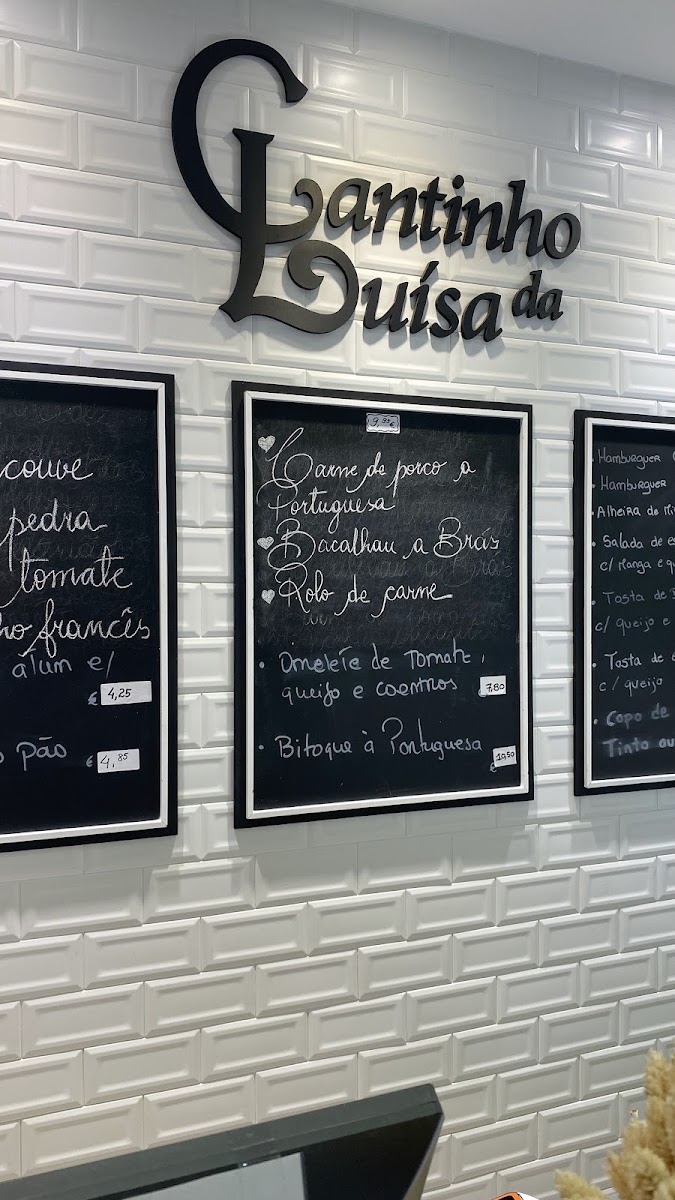 Cantinho
da Luísa
couve
pedra
tomate
francês
€ 4,25
pão
€ 4,85
Carne de porco a
Portuguesa
Bacalhau a Brás
Rolo de carne
Omelete de Tomate,
queijo e coentros 7,80
Bitoque à Portuguesa
€ 10,50
Hamburguer
Hamburguer
Alheira de
Salada de
c/ Manga e
Tosta de
c/ queijo e
Tosta de
c/ queijo
Copo de
Tinto ou